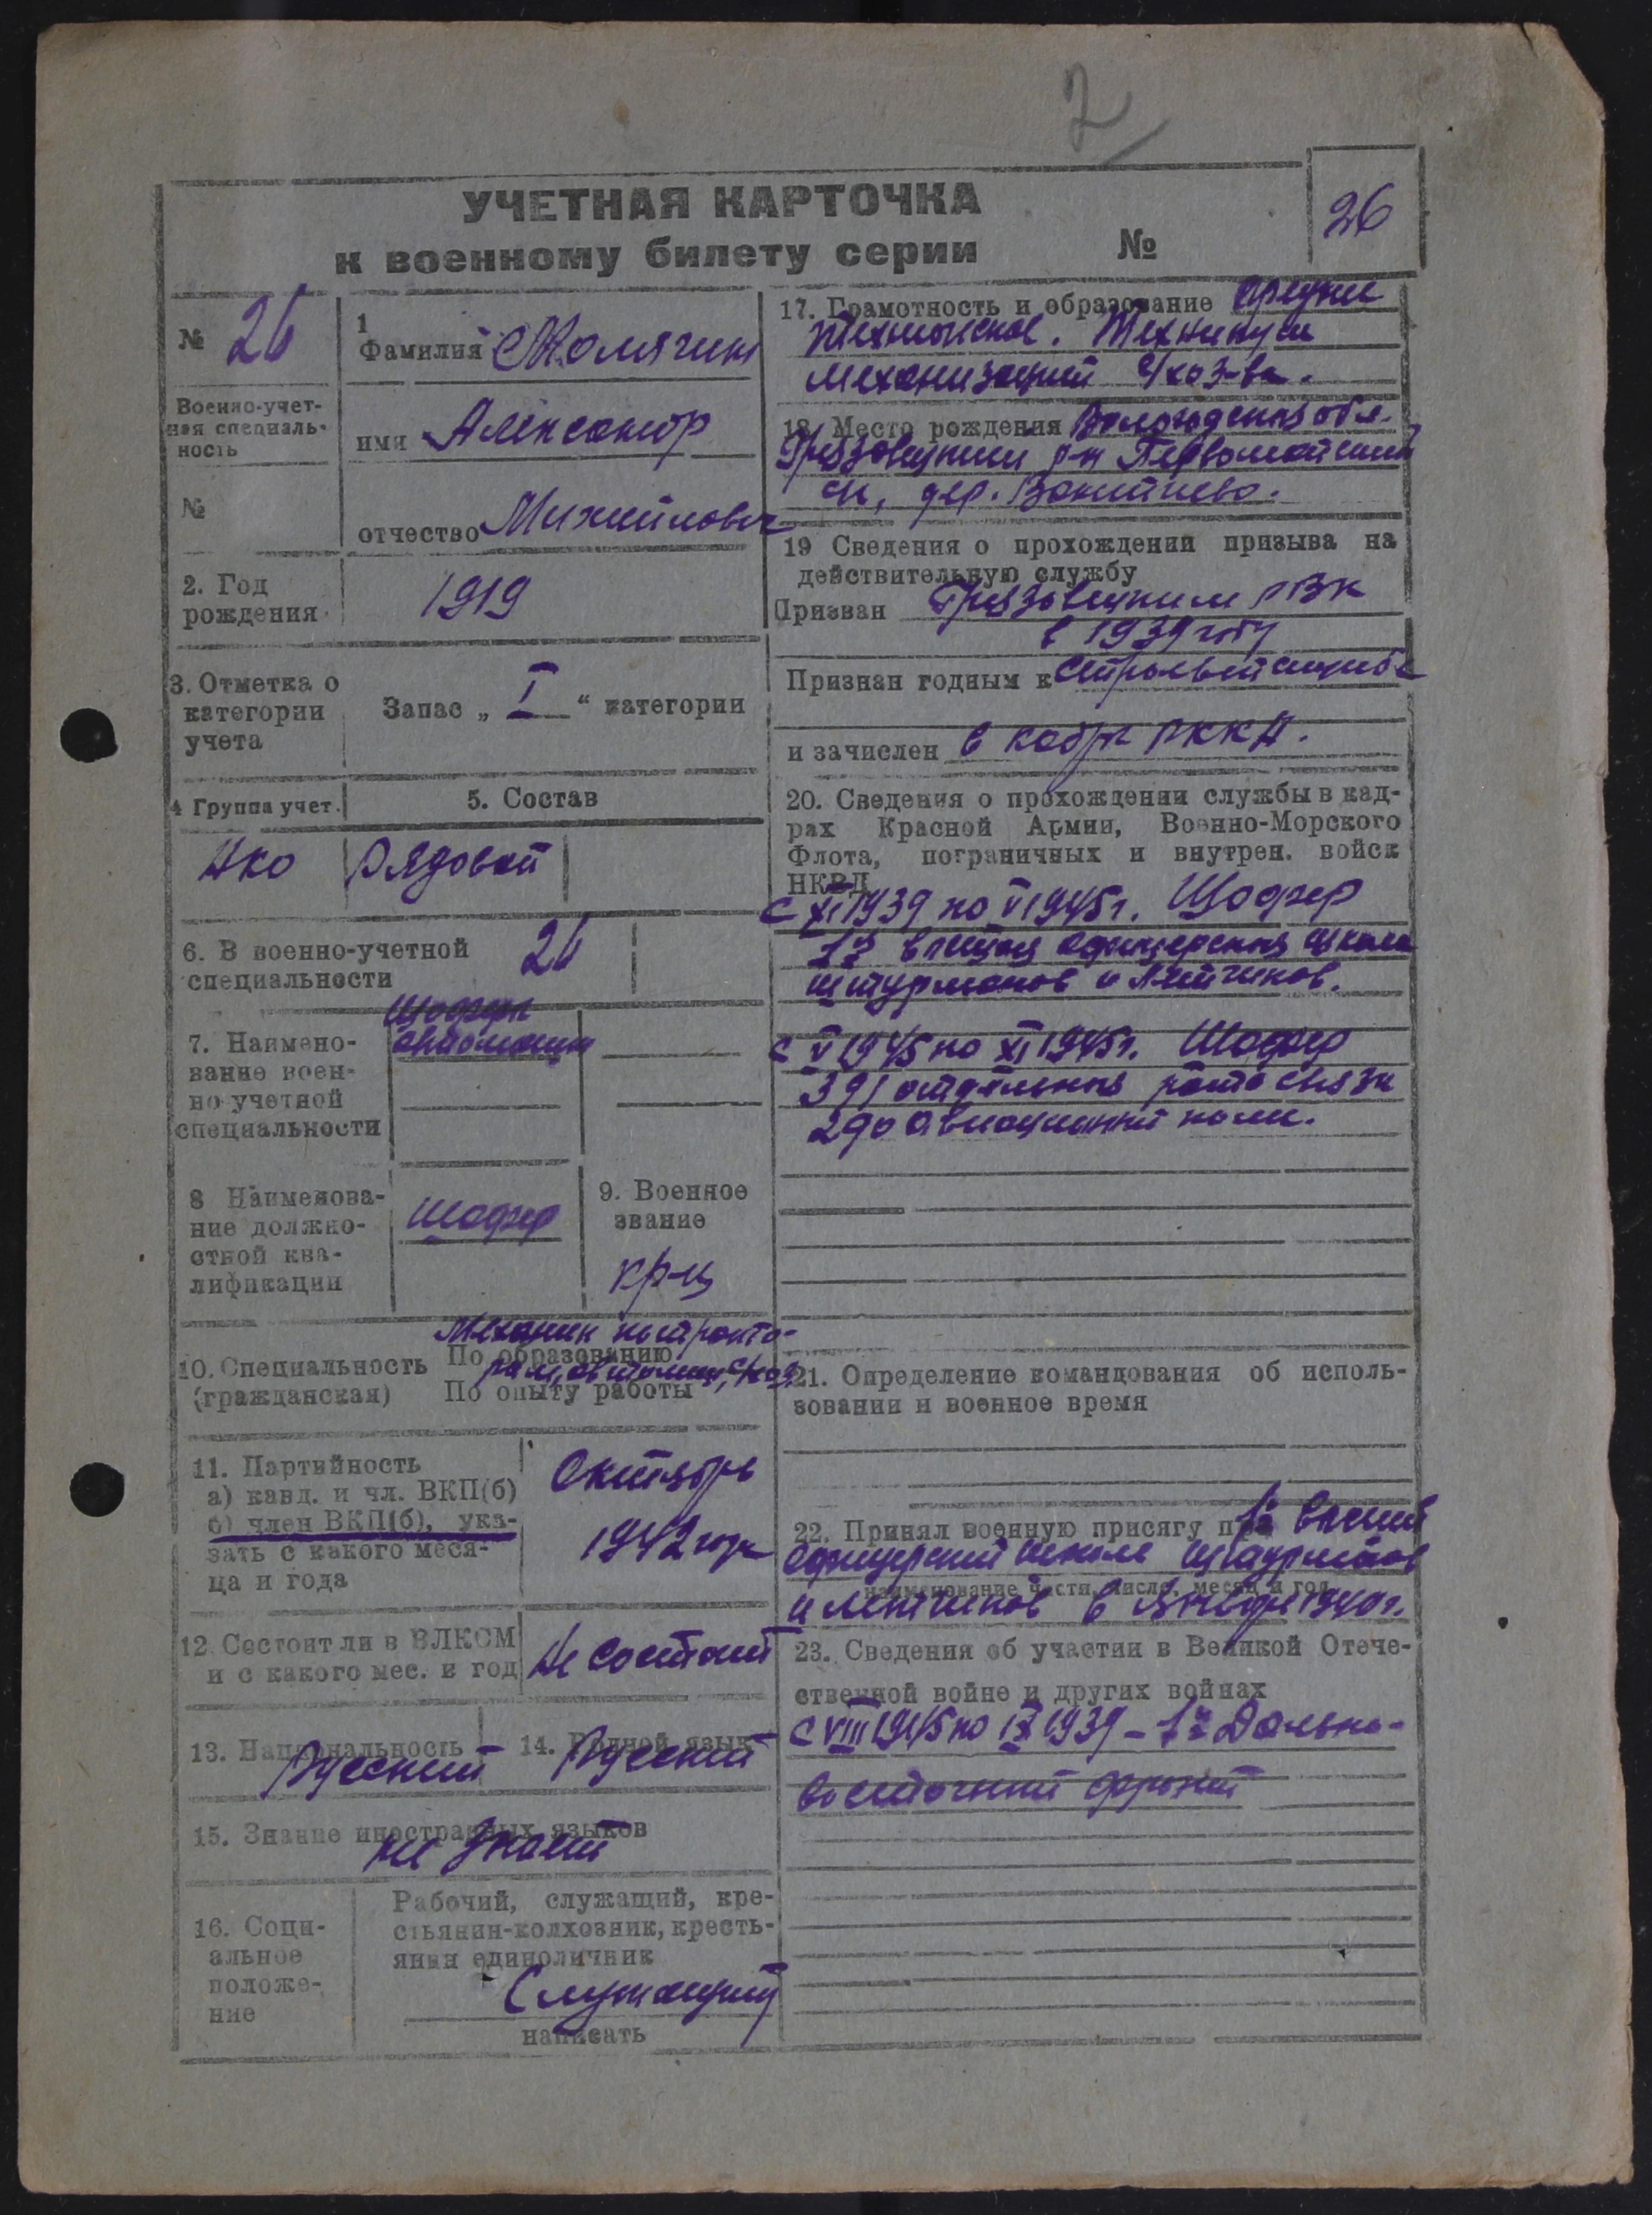 2
УЧЕТНАЯ КАРТОЧКА
к военному билету серии №
26
№ 26
Военно-учет-
ная специаль-
ность
№
1
Фамилия
имя Александр
отчество Михайлович
2. Год
рождения
1919
3. Отметка о
категории
учета
Запас „ I “ категории
4 Группа учет.
5. Состав
Рядовой
6. В военно-учетной
специальности
26
7. Наимено-
вание воен-
но-учетной
специальности
Шофера
автомашин
8 Наименова-
ние должно-
стной ква-
лификации
Шофер
9. Военное
звание
кр-ц
10. Специальность
(гражданская)
Механик по тракто-
По образованию
рам, автомаш, с/хоз
По опыту работы
11. Партийность
а) канд. и чл. ВКП(б)
б) член ВКП(б), ука-
зать с какого меся-
ца и года
Октябрь
1942 года
12. Состоит ли в ВЛКСМ
и с какого мес. и год
Не состоит
13. Национальность
Русский
14. Родной язык
Русский
15. Знание иностранных языков
не знает
16. Соци-
альное
положе-
ние
Рабочий, служащий, кре-
стьянин-колхозник, кресть-
янин единоличник
Служащий
написать
17. Грамотность и образование средне
техническое. Техникум
механизаций с/хоз-ва.
18. Место рождения Вологодская обл.
Грязовецкий р-н Первомайский
с/с, дер.
19 Сведения о прохождении призыва на
действительную службу
Призван Грязовецким РВК
в 1939 году
Признан годным к строевой службе
и зачислен в кадры РККА.
20. Сведения о прохождении службы в кад-
рах Красной Армии, Военно-Морского
Флота, пограничных и внутрен. войск
НКВД
с XI 1939 по V 1945 г. Шофер
1я высшая офицерская школа
штурманов и летчиков.
с V 1945 по XI 1945 г. Шофер
391 отдельная рота связи
290 авиационный полк.
21. Определение командования об исполь-
зовании и военное время
22. Принял военную присягу при 1й высшей
офицерской школе штурманов
наименование части, число, месяц и год
и летчиков в Январе 1940 г.
23. Сведения об участии в Великой Отече-
ственной войне и других войнах
с VIII 1945 по IX 1939 - 1й Дальне-
восточный фронт